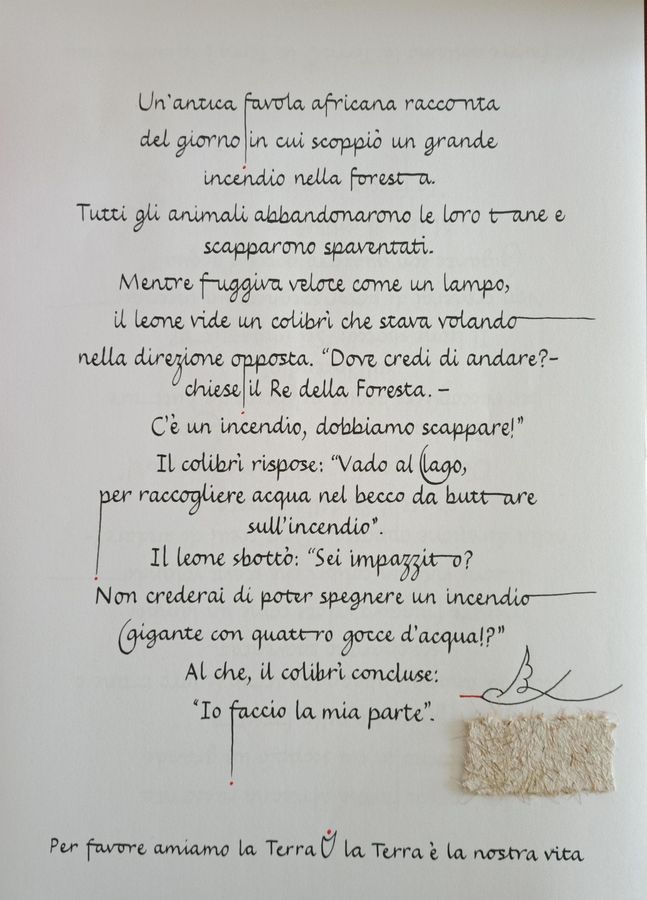 Un'antica favola africana racconta
del giorno in cui scoppiò un grande
incendio nella foresta.
Tutti gli animali abbandonarono le loro tane e
scapparono spaventati.
Mentre fuggiva veloce come un lampo,
il leone vide un colibrì che stava volando
nella direzione opposta. "Dove credi di andare?-
chiese il Re della Foresta. -
C'è un incendio, dobbiamo scappare!"
Il colibrì rispose: "Vado al lago,
per raccogliere acqua nel becco da buttare
sull'incendio".
Il leone sbottò: "Sei impazzito?
Non crederai di poter spegnere un incendio
gigante con quattro gocce d'acqua!?"
Al che, il colibrì concluse:
"Io faccio la mia parte".
Per favore amiamo la Terra la Terra è la nostra vita